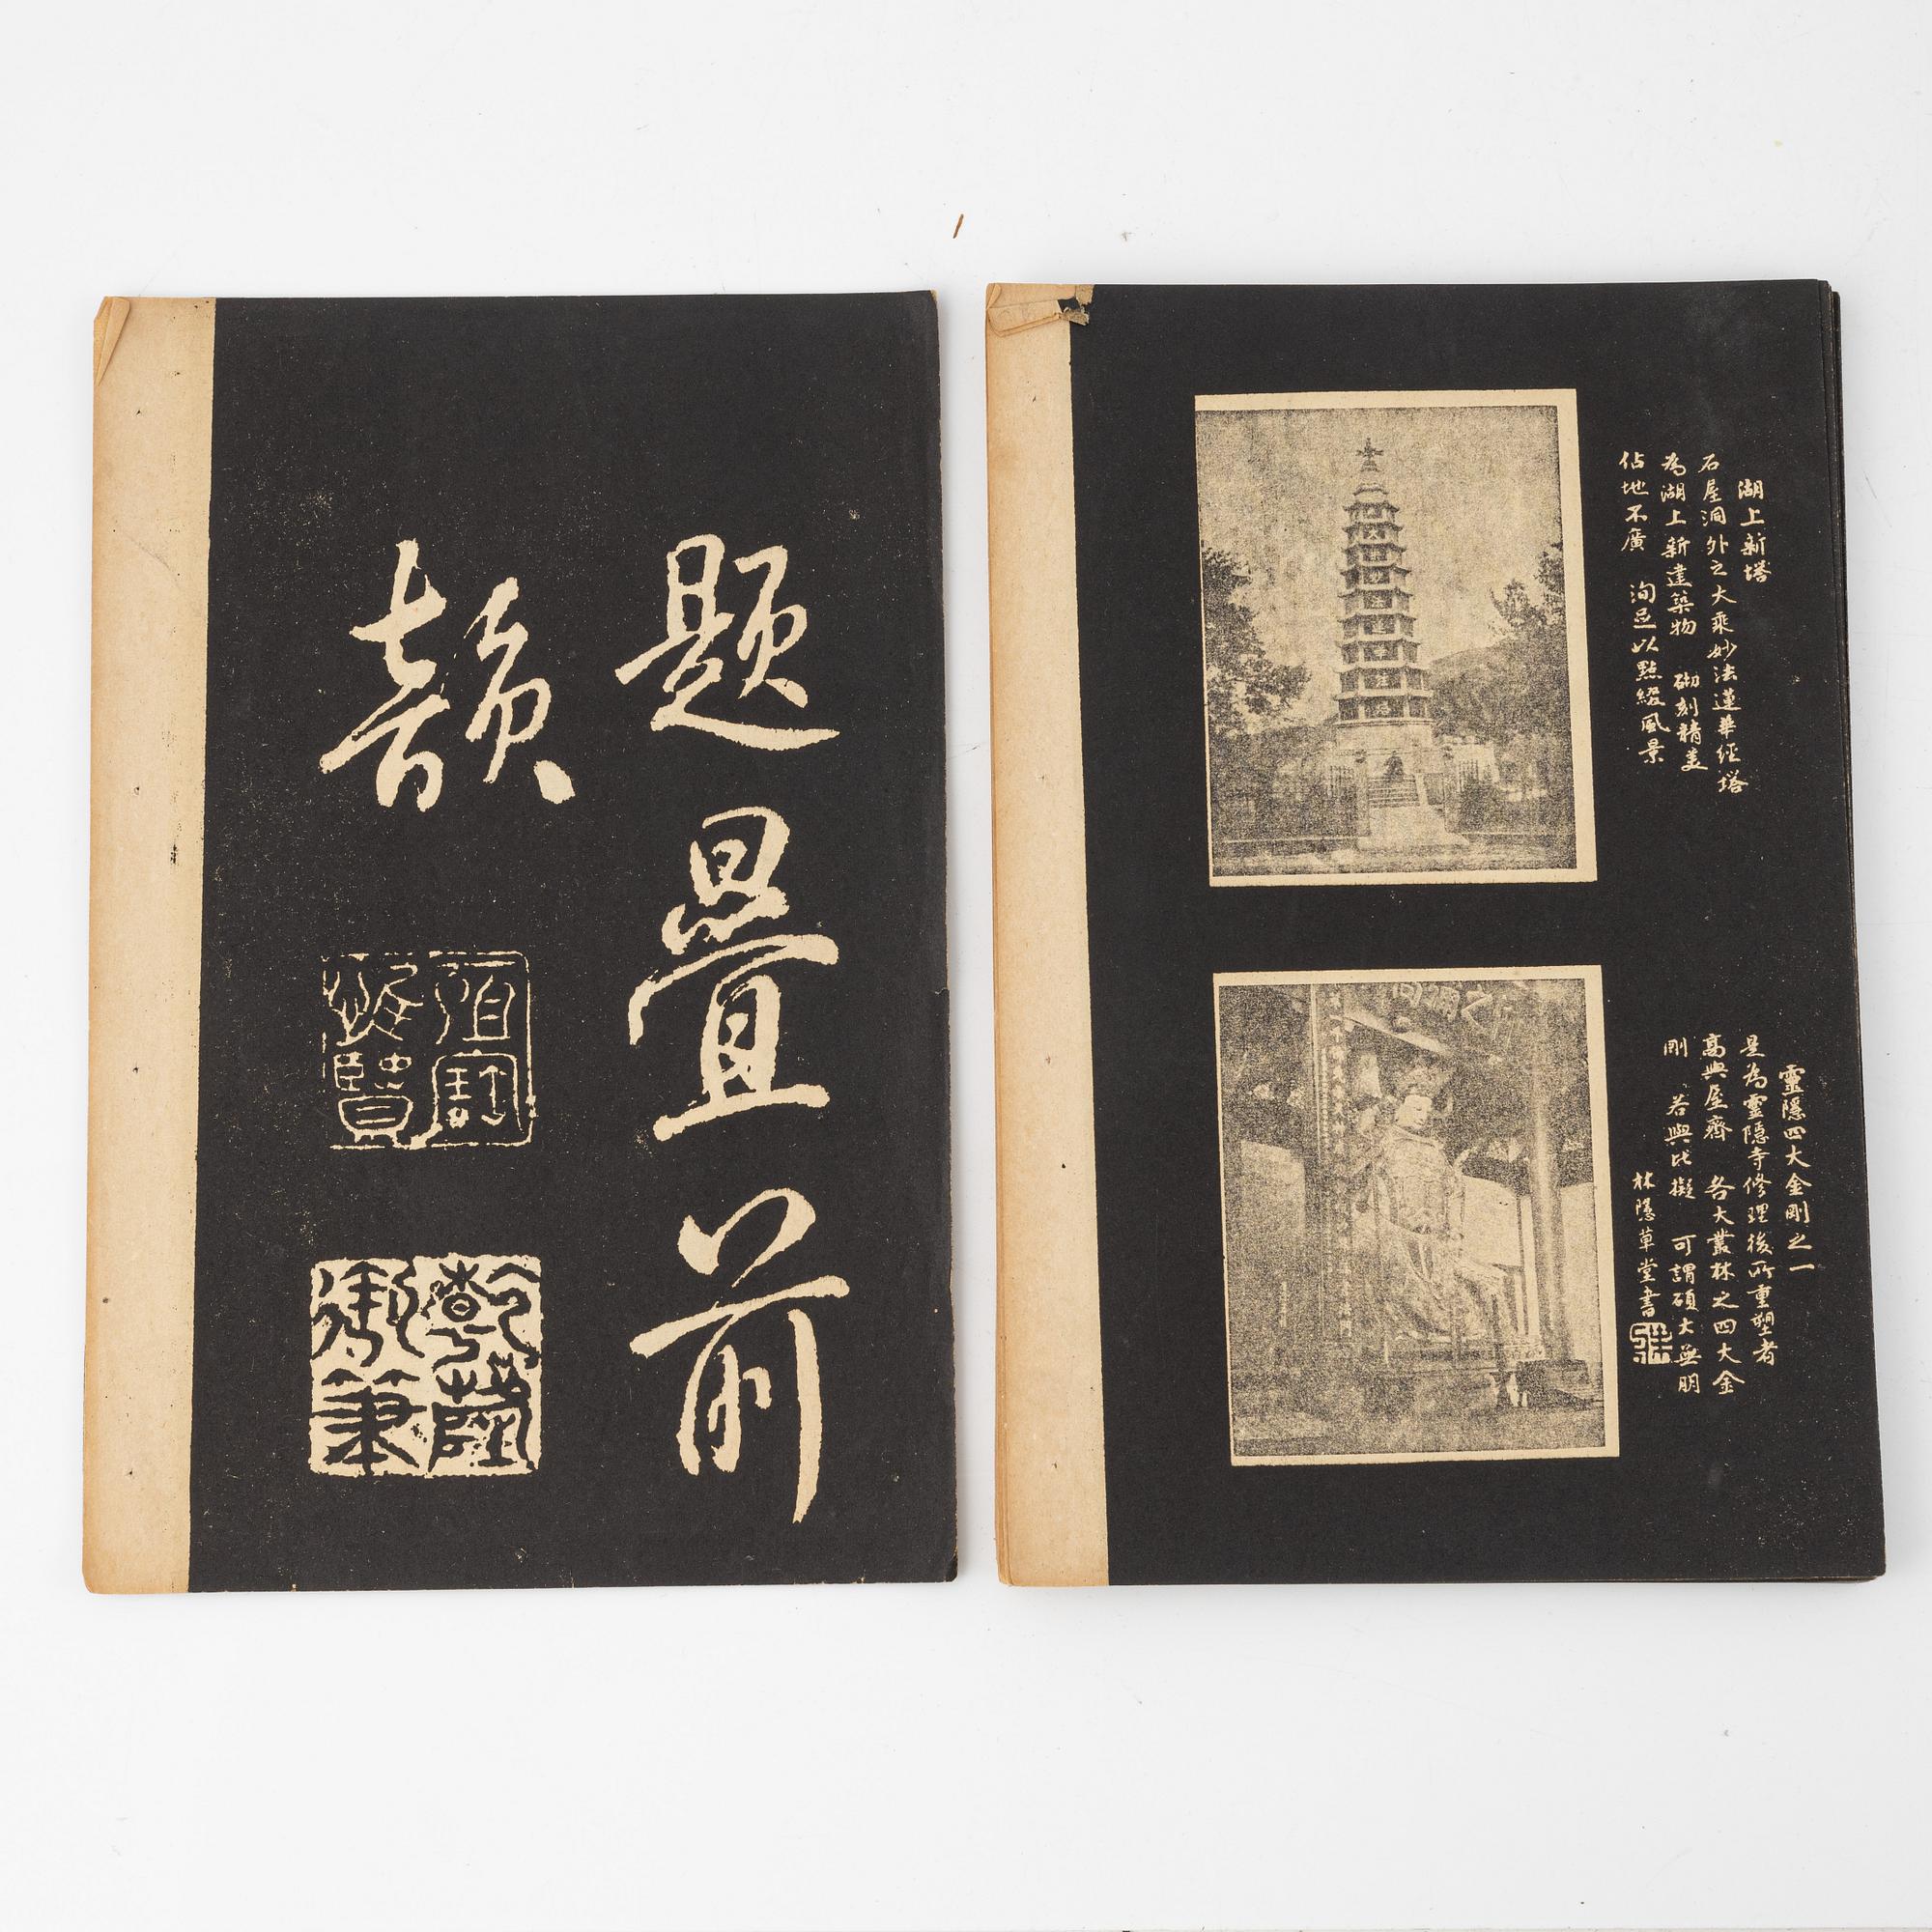 題疊前
韻
湖上新塔
石屋洞外之大乘妙法蓮華經塔
為湖上新建築物 砌刻精美
佔地不廣 洵足以點綴風景
靈隱四大金剛之一
是為靈隱寺修理後所重塑者
高與屋齊 各大叢林之四大金
剛 若與比擬 可謂碩大無朋
林隱草堂書